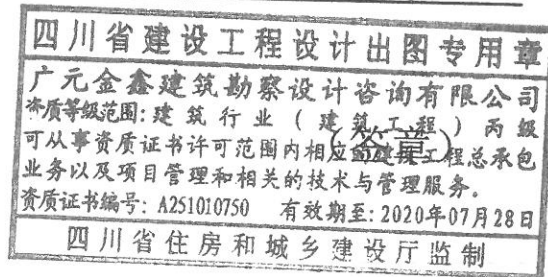 四川省建设工程设计出图专用章
广元金鑫建筑勘察设计咨询有限公司
资质等级范围:建筑行业(建筑工程)丙级
(签章)
可从事资质证书许可范围内相应的建设工程总承包
业务以及项目管理和相关的技术与管理服务。
资质证书编号:A251010750 有效期至:2020年07月28日
四川省住房和城乡建设厅监制